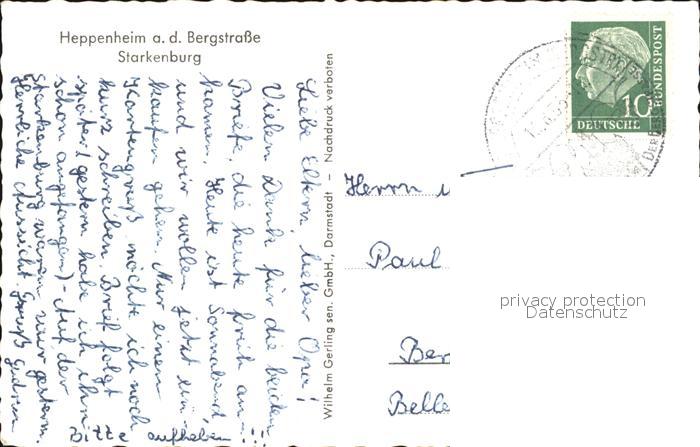 Heppenheim a. d. Bergstraße
Starkenburg
Liebe Eltern, lieber Opa!
Vielen Dank für die beiden
Briefe, die heute früh an-
kamen. Heute ist Sonnabend
und wir wollen jetzt ein-
kaufen gehen. Nur einen
Kartengruß möchte ich noch
kurz schreiben. Brief folgt
später! (gestern habe ich ihn
schon angefangen) - Auf der
Starkenburg waren wir gestern.
Herrliche Aussicht. Gruß Gudrun
Bitte aufheben!!!
Wilhelm Gerling sen. GmbH., Darmstadt – Nachdruck verboten
10
DEUTSCHE BUNDESPOST
Herrn
Paul
Ber
Belle
privacy protection
Datenschutz